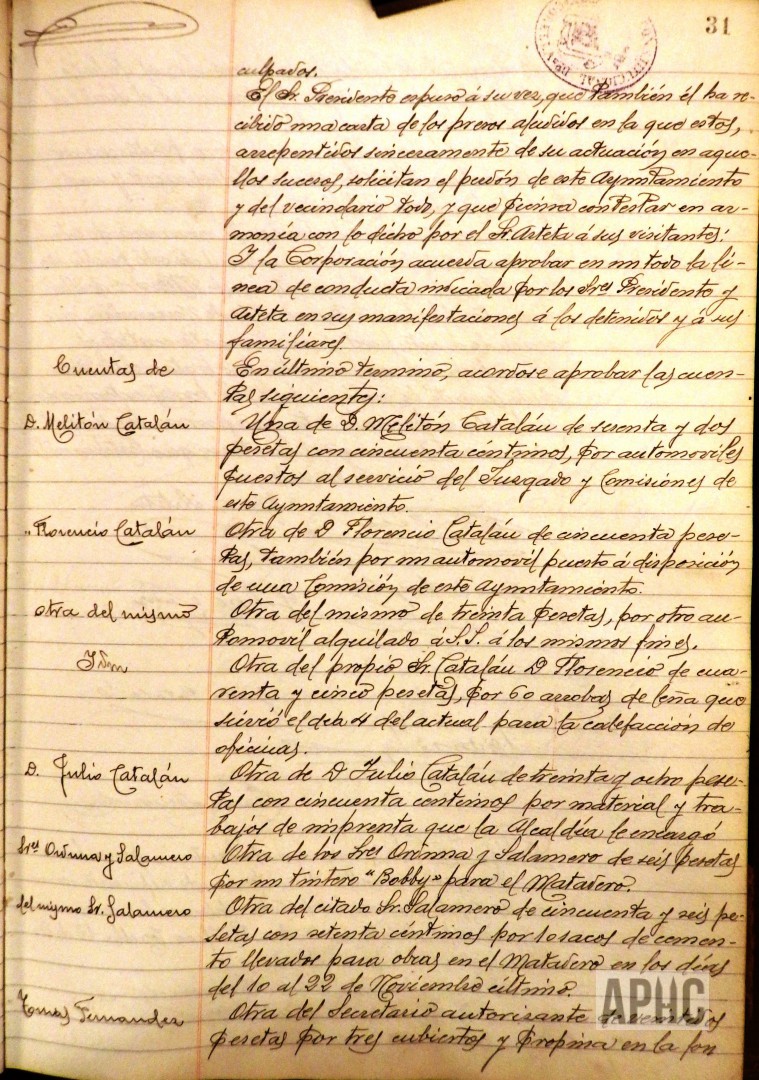 31
culpados.
El Sr. Presidente expuso á su vez, que también él ha re-
cibido una carta de los presos aludidos en la que estos,
arrepentidos sinceramente de su actuación en aque-
llos sucesos, solicitan el perdón de este Ayuntamiento
y del vecindario todo, y que piensa contestar en ar-
monía con lo dicho por el Sr. Arteta á sus visitantes:
I la Corporación acuerda aprobar en un todo la lí-
nea de conducta indicada por los Sres Presidente y
Arteta en sus manifestaciones á los detenidos y á sus
familiares
Cuentas de
En último termino, acordose aprobar las cuen-
tas siguientes:
D. Melitón Catalán
Una de D. Melitón Catalán de sesenta y dos
pesetas con cincuenta céntimos, por automoviles
puestos al servicio del Juzgado y Comisiones de
este Ayuntamiento.
" Florencio Catalán
Otra de D Florencio Catalán de cincuenta pese-
tas, también por un automovil puesto á disposición
de una Comisión de este Ayuntamiento.
otra del mismo
Otra del mismo de treinta pesetas, por otro au-
tomovil alquilado á S.S. á los mismos fines.
Idm
Otra del propio Sr. Catalán D Florencio de cua-
renta y cinco pesetas, por 60 arrobas de leña que
sirvió el dia 4 del actual para la calefacción de
oficinas.
D. Julio Catalán
Otra de D Julio Catalán de treinta y ocho pese-
tas con cincuenta centimos por material y tra-
bajos de imprenta que la Alcaldía le encargó
Sres Orinna y Salamero
Otra de los Sres Orinna y Salamero de seis pesetas
por un tintero "Bobby" para el Matadero.
del mismo Sr. Salamero
Otra del citado Sr. Salamero de cincuenta y seis pe-
setas con setenta céntimos por 10 sacos de cemen-
to llevados para obras en el Matadero en los días
del 10 al 22 de Noviembre último.
Tomas Fernandez
Otra del Secretario autorizante de veintidos
pesetas por tres cubiertos y propina en la fon
APHC